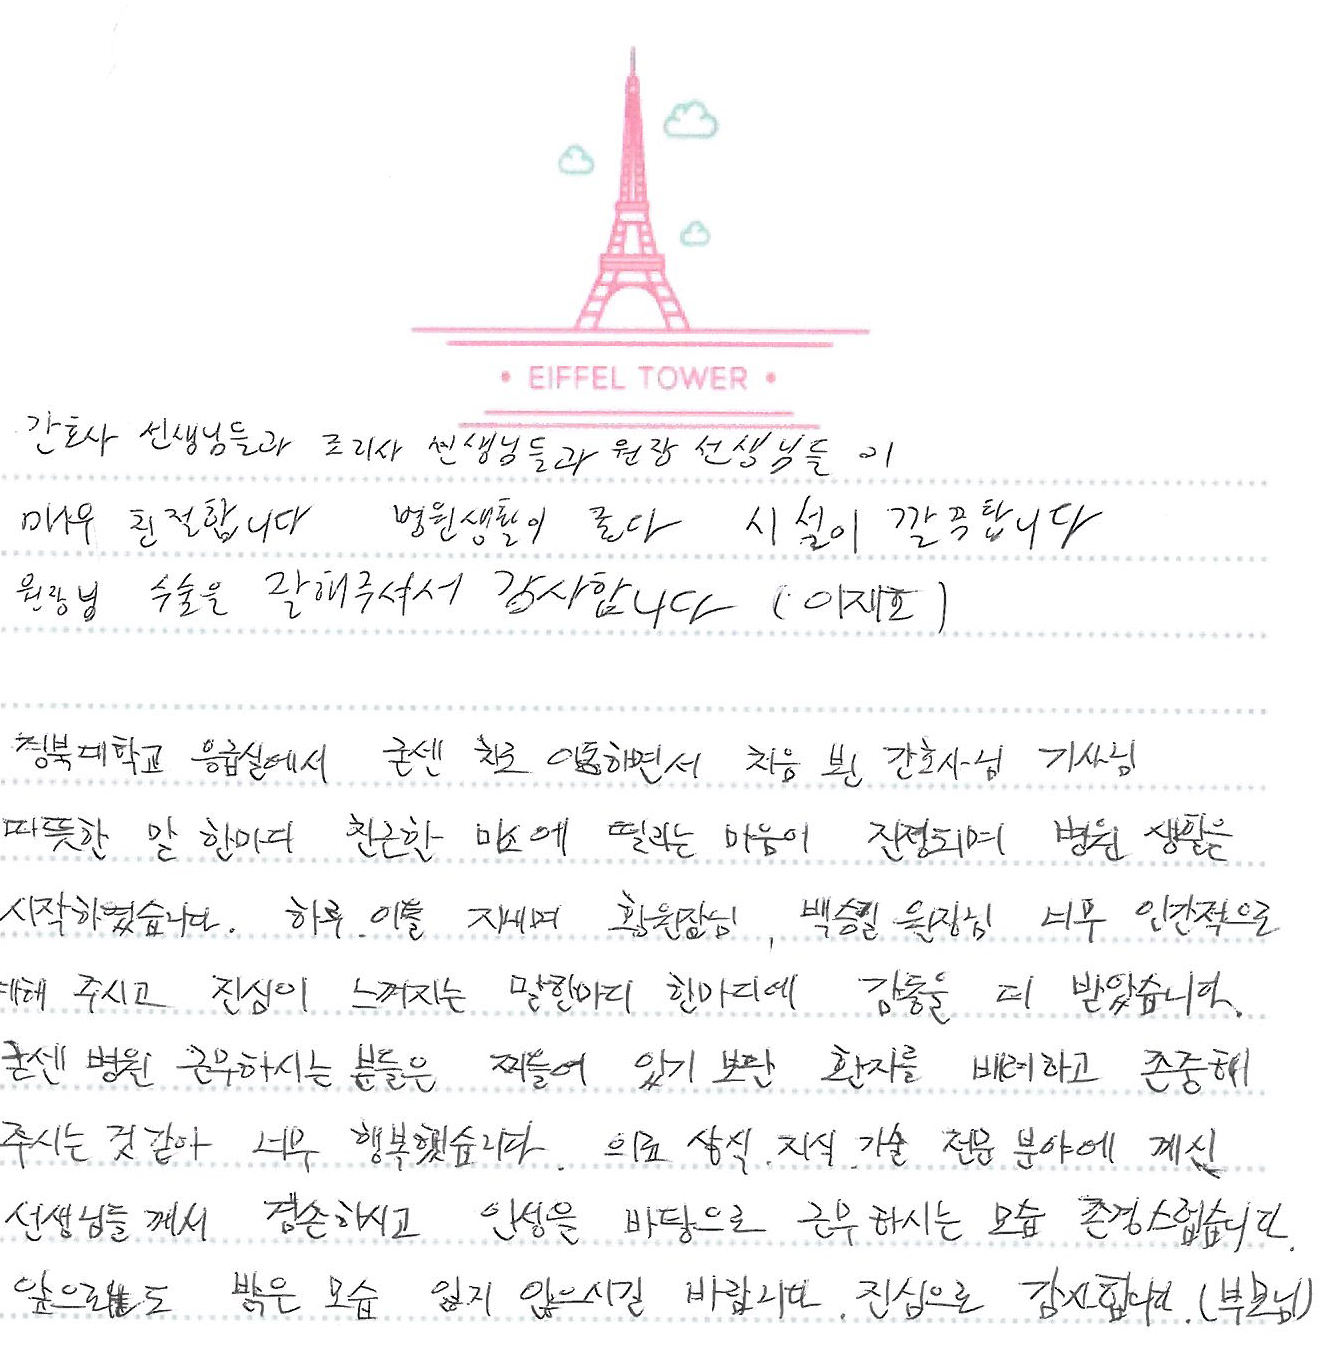 EIFFEL TOWER
간호사 선생님들과 조리사 선생님들과 원장 선생님들 이
매우 친절합니다 병원생활이 좋다 시설이 깔끔합니다
원장님 수술을 잘해주셔서 감사합니다 (이재호)
응급실에서 굳센 차로 이동하면서 처음 본 간호사님 기사님
따뜻한 말 한마디 친근한 미소에 떨리는 마음이 진정되며 병원 생활을
시작하였습니다. 하루.이틀 지내며 황원장님, 백승길 원장님 너무 인간적으로
대해 주시고 진심이 느껴지는 말한마디 한마디에 감동을 더 받았습니다.
굳센 병원 근무하시는 분들은 찌들어 있기 보단 환자를 배려하고 존중해
주시는 것 같아 너무 행복했습니다. 의료 상식.지식.기술 전문 분야에 계신
선생님들께서 겸손하시고 인성을 바탕으로 근무하시는 모습 존경스럽습니다.
앞으로도 밝은 모습 잃지 않으시길 바랍니다. 진심으로 감사합니다.(부모님)